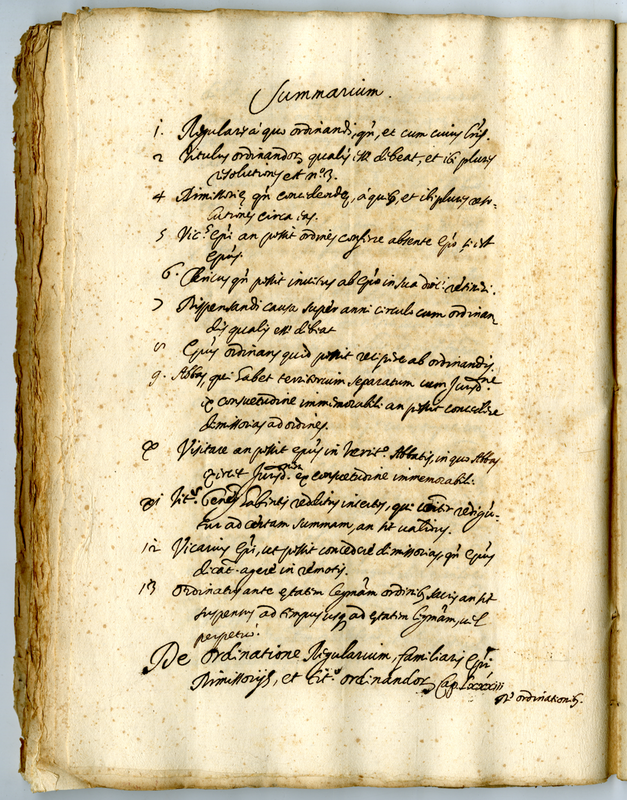 Summarium.
1. Regulares à quo ordinandi, qn̄, et cum cuius
2 Titulus ordinandor, qualis esse debeat, et ibi plures
resolutiones est nº 3.
4 Dimissoriæ qn̄ concedendæ, á quib, et ibi plures reso-
lutiones circa eas.
5 Vic.s Epī an possit ordines conferre absente Epo
Epūs.
6. Clericus qn̄ possit invitus ab Epo in sua retineri.
7 Dispensandi causa super anni circulo cum ordinan
dis qualis esse debeat
8 Epūs ordinans quid possit recipere ab ordinandis.
9. Abbas, qui habet territorium separatum cum Jurisd.ne
ex consuetudine immemorabili an possit concedere
dimissorias ad ordines.
Visitare an possit Epūs in territ.o Abbatis, in quo Abbas
exercet Jurisd.nem ex consuetudine immemorabili.
Tit.s habentis redditus incertos, qui redigū-
tur ad certam summam, an sit validus.
12 Vicarius Epi, ut possit concedere dimissorias qn̄ Epūs
dicat agere in remotis.
13 Ordinatus ante ętatem legmām ordinib, sacris an sit
suspensus ad tempus usq, ad ętatem legmām, vel
perpetuo.
De ordinatione Regularium, familiaris Epī
Dimissorijs, et tit.s ordinandor, Cap. Lxxxiii
ordinationib.